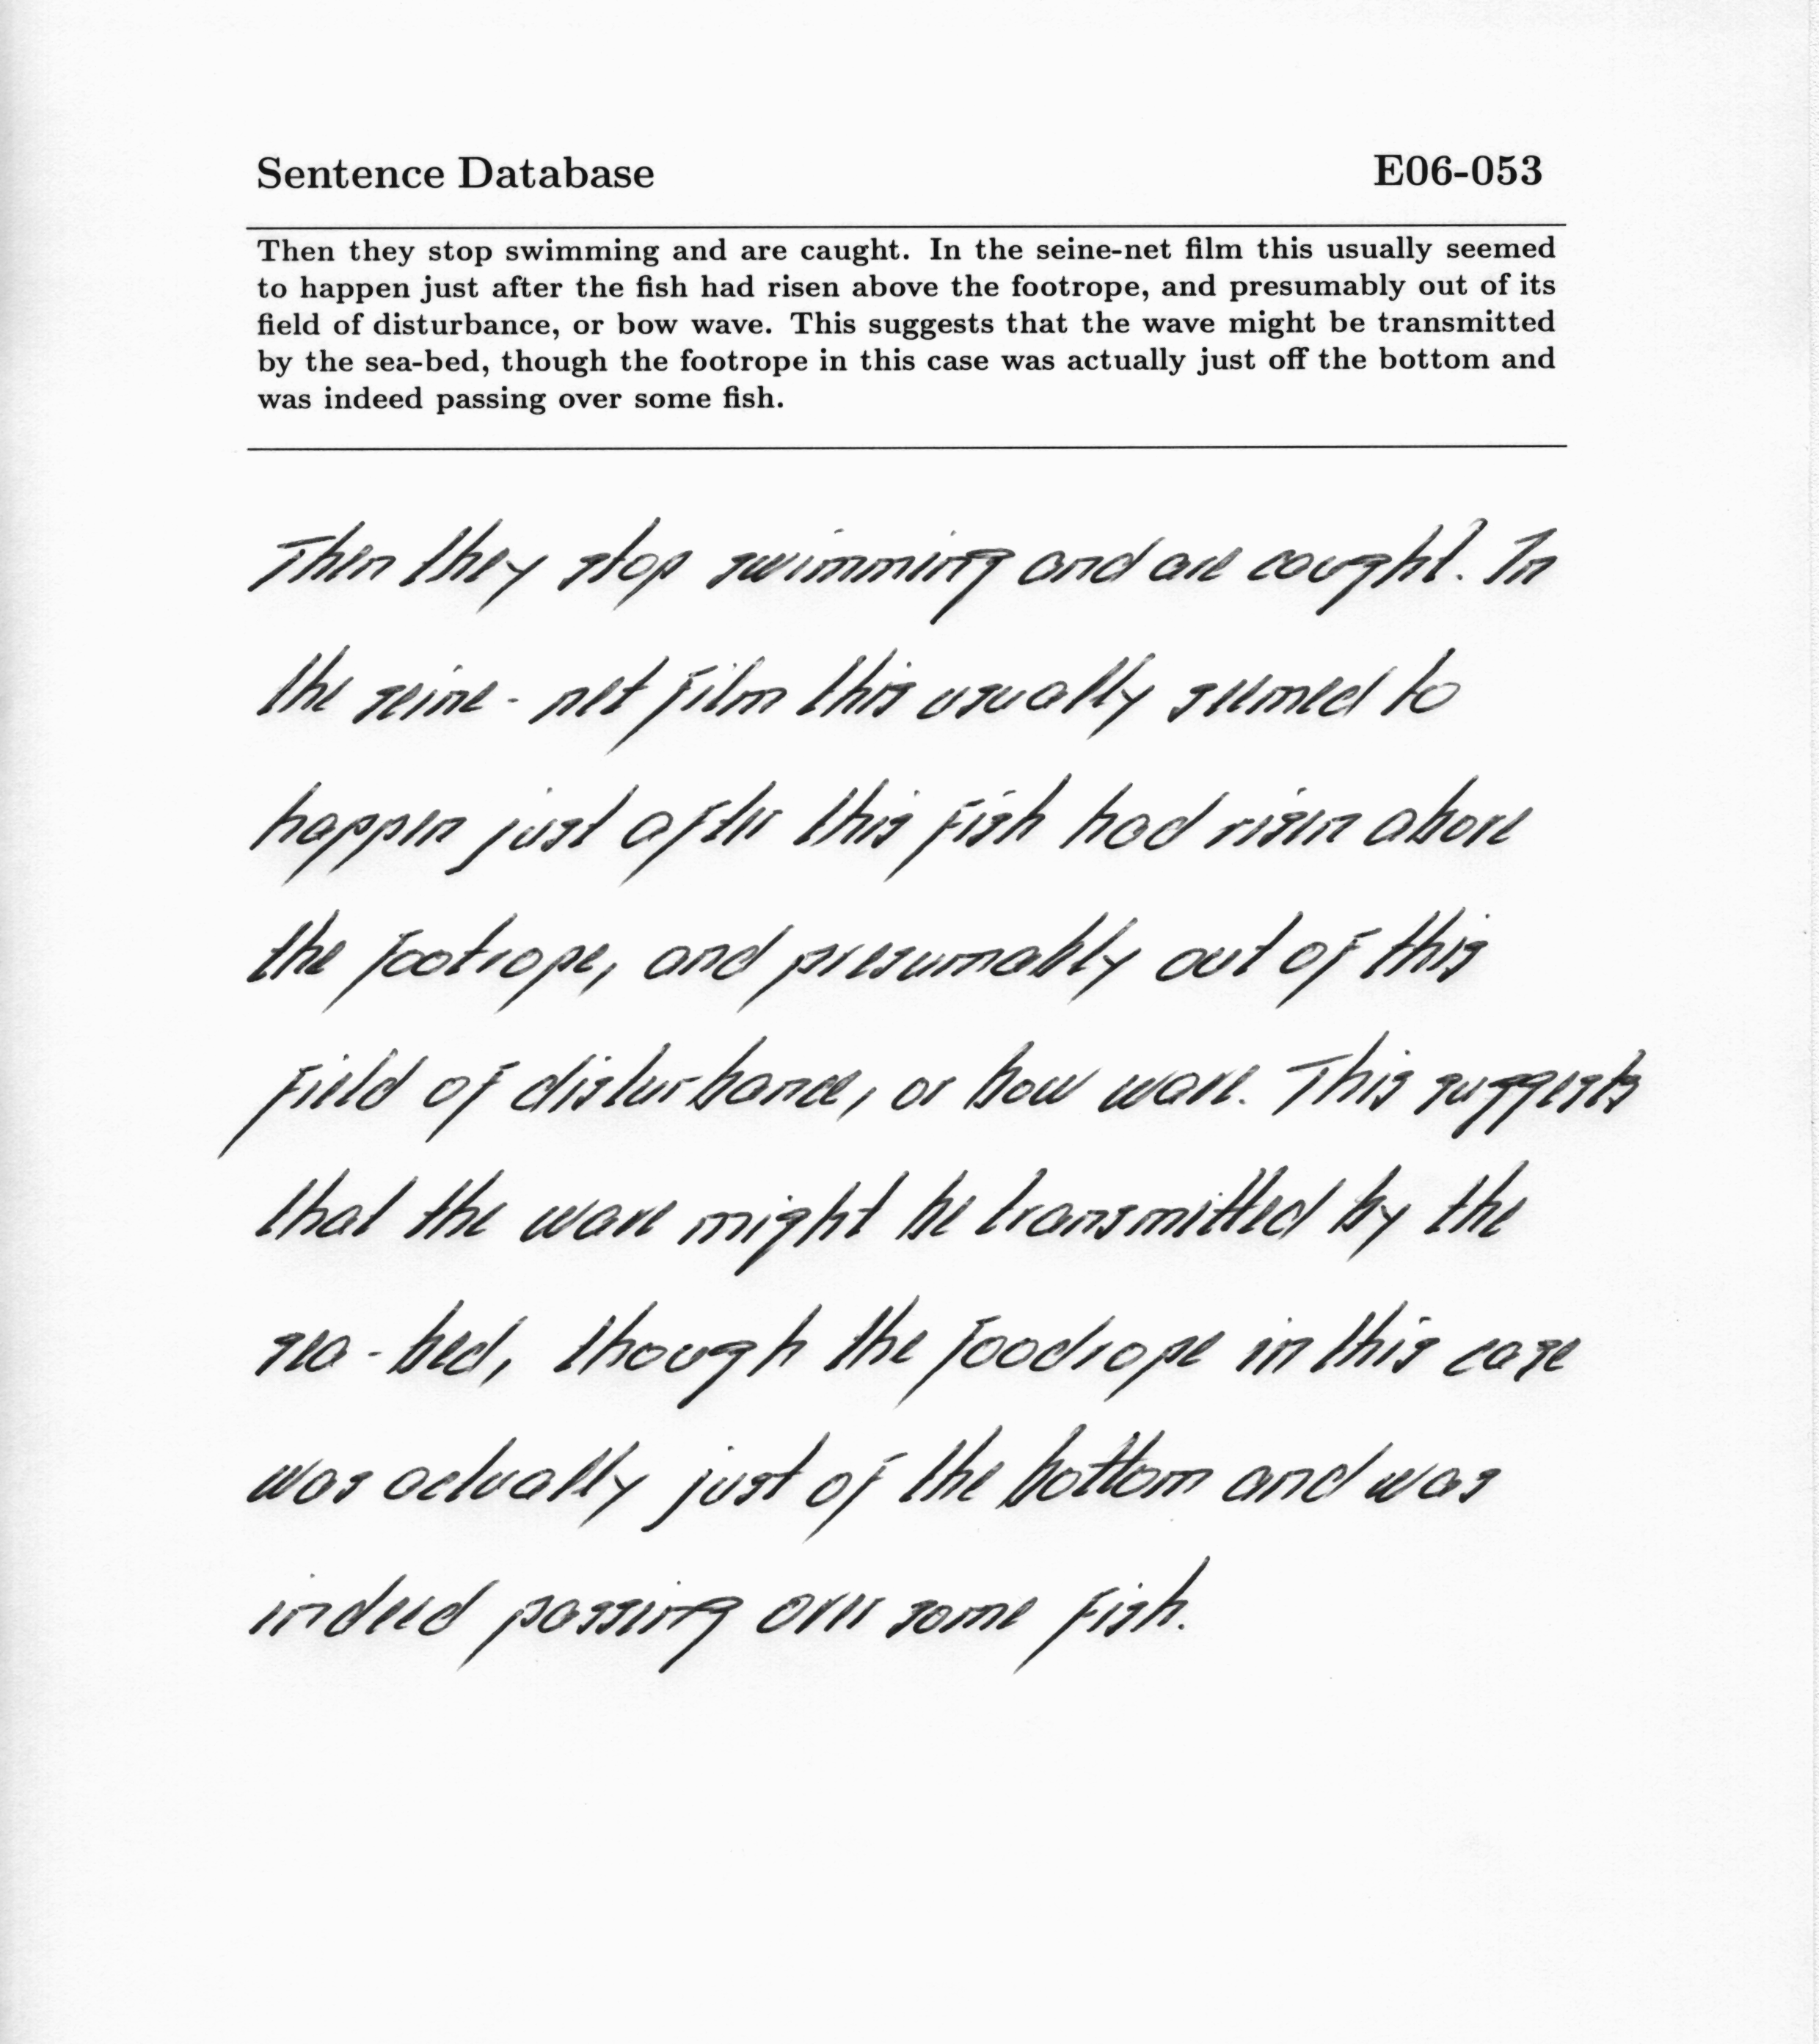 Sentence Database E06-053
Then they stop swimming and are caught. In the seine-net film this usually seemed
to happen just after the fish had risen above the footrope, and presumably out of its
field of disturbance, or bow wave. This suggests that the wave might be transmitted
by the sea-bed, though the footrope in this case was actually just off the bottom and
was indeed passing over some fish.
Then they stop swimming and are caught. In
the seine-net film this usually seemed to
happen just after this fish had risen above
the footrope, and presumably out of this
field of disturbance, or bow wave. This suggests
that the wave might be transmitted by the
sea-bed, though the foodrope in this case
was actually just of the bottom and was
indeed passing over some fish.